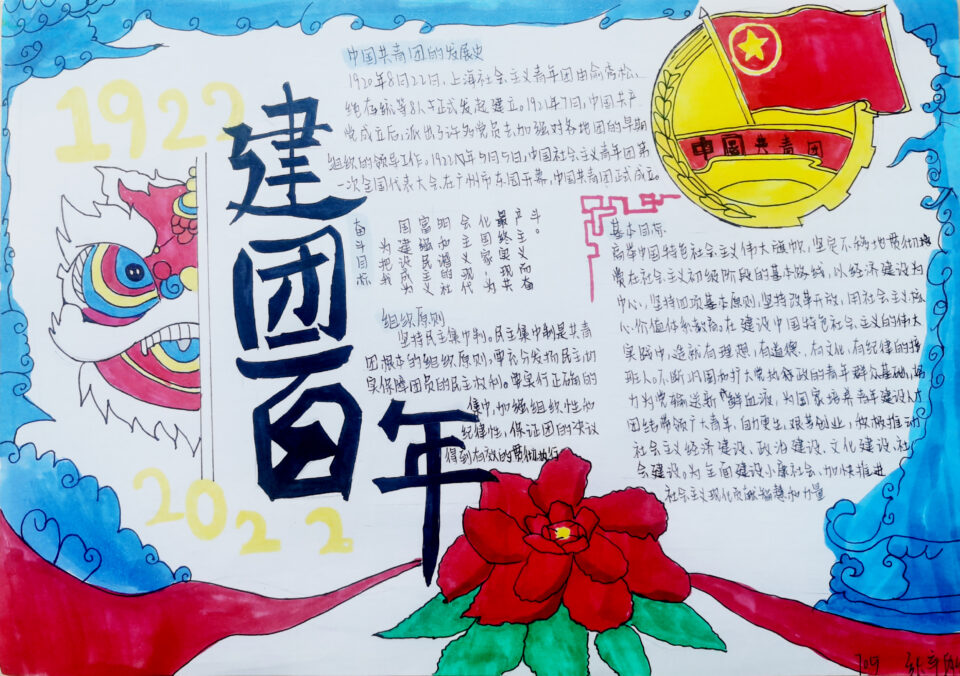 1922
2022
建团百年
中国共青团
中国共青团的发展史
1920年8月22日,上海社会主义青年团由俞秀松、
等8人正式发起建立。1921年7月,中国共产
党成立后,派出了许多党员去加强对各地团的早期
组织的领导工作,1922年5月5日,中国社会主义青年团第
一次全国代表大会在广州市东园开幕,中国共青团正式成立。
奋斗目标
为把我
国建设成为
富强民主
明和谐的社
会主义现代
化国家,为
最终实现共
产主义而奋
斗。
组织原则
坚持民主集中制。民主集中制是共青
团根本的组织原则,要充分发扬民主切
实保障团员的民主权利。要实行正确的
集中,加强组织性和
纪律性,保证团的决议
得到有效的贯彻执行
基本目标
高举中国特色社会主义伟大旗帜,坚定不移地贯彻
在社会主义初级阶段的基本路线,以经济建设为
中心,坚持四项基本原则,坚持改革开放,用社会主义核
心价值体系教育。在建设中国特色社会主义的伟大
实践中,造就有理想,有道德,有文化,有纪律的接
班人。不断巩固和扩大党执政的青年群众基础,
力为党输送新鲜血液,为国家培养青年建设人才
团结带领广大青年,自力更生,艰苦创业,积极推动
社会主义经济建设、政治建设、文化建设、社
会建设。为全面建设小康社会、加快推进
社会主义现代化贡献智慧和力量